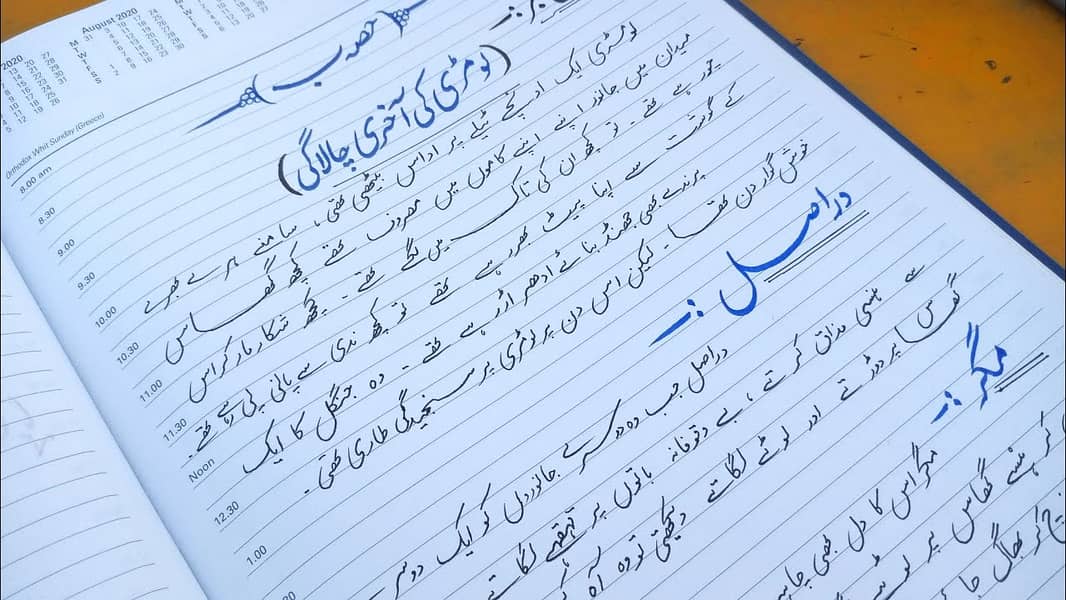 August 2020
Orthodox Whit Sunday (Greece)
8.00 am
8.30
9.00
9.30
10.00
10.30
11.00
11.30
Noon
12.30
1.00
حصہ ب
(لومڑی کی آخری چالاگی)
لومڑی ایک اونچے ٹیلے پر اداس بیٹھی تھی، سامنے ہرے بھرے
میدان میں جانور اپنے اپنے کاموں میں مصروف تھے کچھ گھاس
چر رہے تھے۔ تو کچھ ان کی تاک میں لگے تھے۔ کچھ شکار مار کر اس
کے گوشت سے اپنا پیٹ بھر رہے تھے تو کچھ ندی سے پانی پی رہے تھے۔
پرندے بھی جھنڈ بنائے ادھر اڑ رہے تھے۔ وہ جنگل کا ایک
خوش گوار دن تھا۔ لیکن اس دن پر لومڑی پر سنجیدگی طاری تھی۔
دراصل :۔
دراصل جب وہ دوسرے جانوروں کو ایک دوسرے
سے ہنسی مذاق کرتے، بے وقوفانہ باتوں پر قہقہے لگاتے
گھاس پر دوڑتے اور لوٹے لگاتے دیکھتی تو وہ آہ
مگر :۔
مگر اس کا دل بھی چاہ
گھاس پر لوٹ
کر بھاگ جا